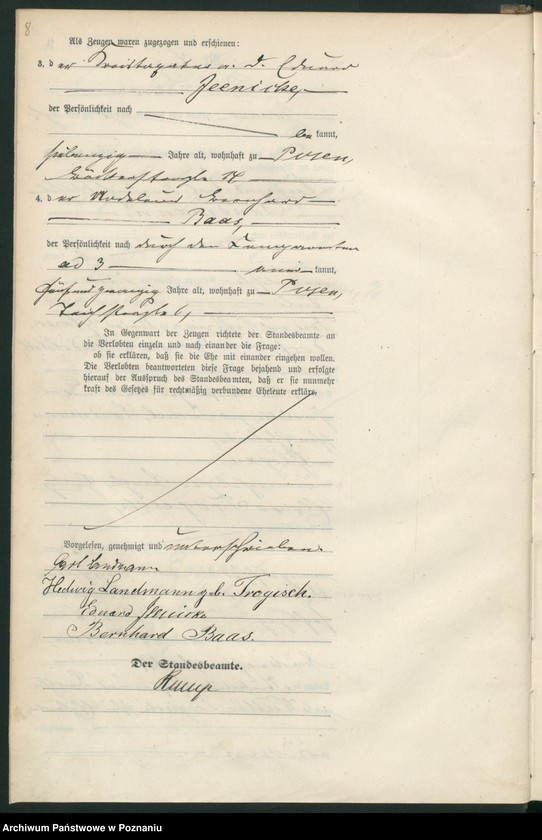 8
Als Zeugen waren zugezogen und erschienen:
3. der a. D. Eduard
Jeenicke,
der Persönlichkeit nach
be kannt,
siebenzig Jahre alt, wohnhaft zu Posen,
4. der Bernhard
Baas,
der Persönlichkeit nach durch den
ad 3 kannt,
fünfundzwanzig Jahre alt, wohnhaft zu Posen,
In Gegenwart der Zeugen richtete der Standesbeamte an
die Verlobten einzeln und nach einander die Frage:
ob sie erklären, daß sie die Ehe mit einander eingehen wollen.
Die Verlobten beantworteten diese Frage bejahend und erfolgte
hierauf der Ausspruch des Standesbeamten, daß er sie nunmehr
kraft des Gesetzes für rechtmäßig verbundene Eheleute erkläre.
Vorgelesen, genehmigt und unterschrieben
Carl Landmann
Hedwig Landmann geb. Trogisch.
Eduard Jeenicke
Bernhard Baas.
Der Standesbeamte.
Archiwum Państwowe w Poznaniu